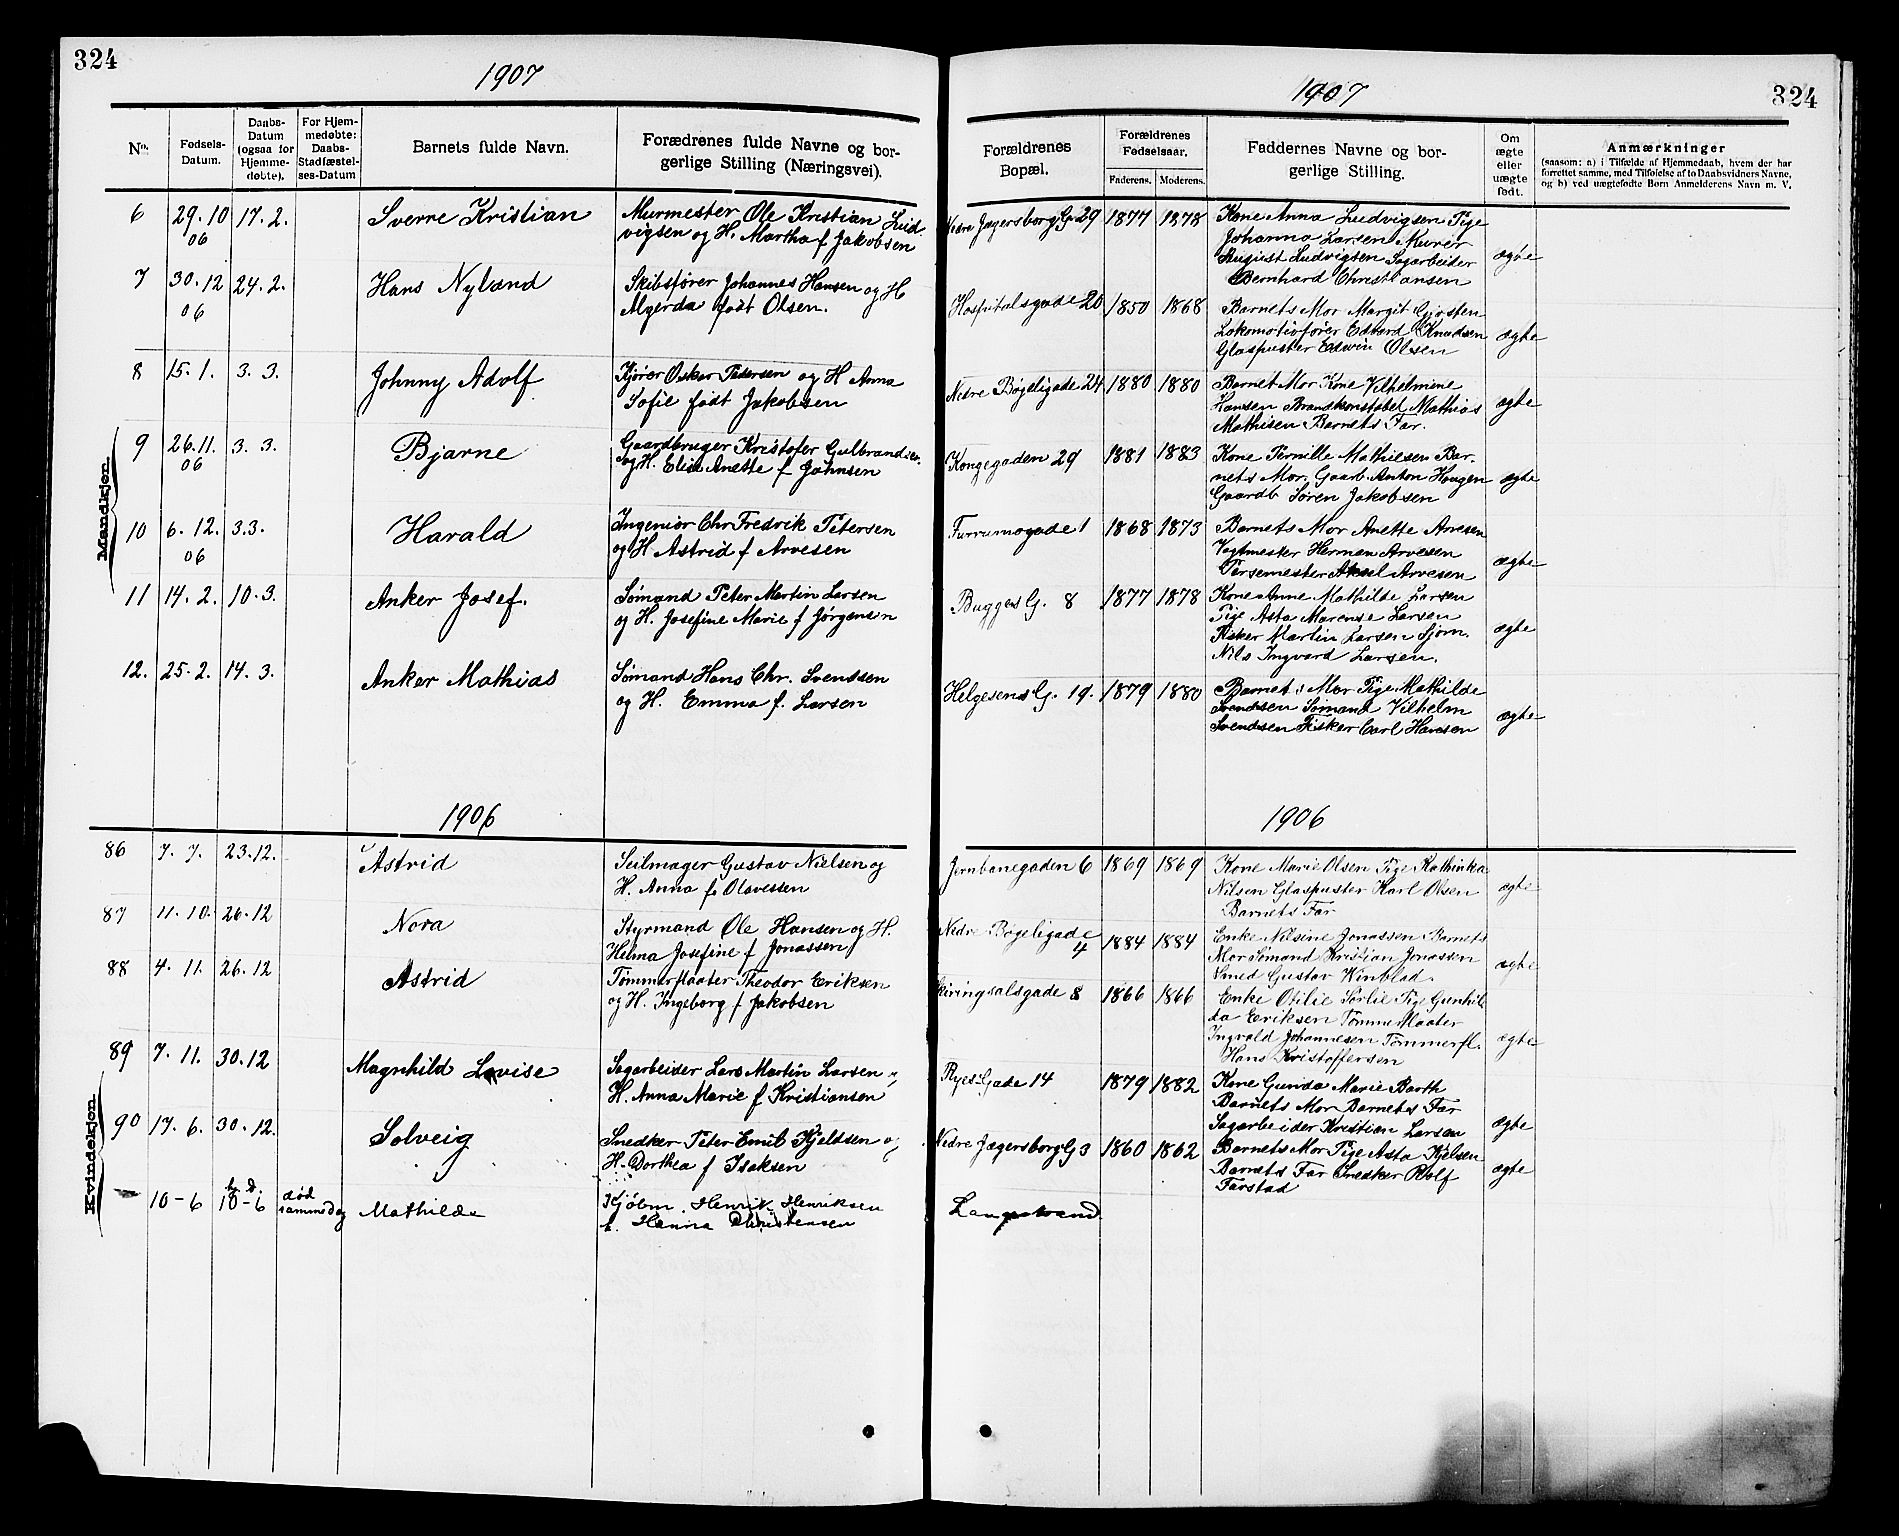 324
1907
No.
Fødsels-
Datum.
Daabs-
Datum
(ogsaa for
Hjemme-
døbte).
For Hjem-
medøbte:
Daabs-
Stadfæstel-
ses-Datum
Barnets fulde Navn.
Forædrenes fulde Navne og bor-
gerlige Stilling (Næringsvei).
Mandkjøn
6 29.10 17.2. Sverre Kristian Murmester Ole Kristian Lud-
06 vigsen og H. Martha f Jakobsen
7 30.12 24.2. Hans Nyland Skibsfører Johannes Hansen og H
06 født Olsen.
8 15.1. 3.3. Johnny Adolf Kjører Oskar Petersen og H Anna
Sofie født Jakobsen
9 26.11. 3.3. Bjarne Gaardbruger Kristofer Gulbrandsen
06 og H. Elise Anette f Johnsen
10 6.12. 3.3. Harald Ingeniør Chr Fredrik Petersen
06 og H Astrid f Arvesen
11 14.2. 10.3. Anker Josef. Sømand Peter Martin Larsen
og H. Josefine Marie f Jørgensen
12. 25.2. 14.3. Anker Mathias Sømand Hans Chr. Svendsen
og H. Emma f. Larsen
1906
Kvindekjøn
86 7.7. 23.12. Astrid Seilmager Gustav Nielsen og
H. Anna f. Olavessen
87 11.10. 26.12 Nora Styrmand Ole Hansen og H.
Helma Josefine f Jonassen
88 4.11. 26.12 Astrid Tømmerflaater Theodor Eriksen
og H. Ingeborg f Jakobsen
89 7.11. 30.12 Magnhild Lovise Sagarbeider Lars Martin Larsen
H. Anna Marie f Kristiansen
90 17.6. 30.12. Solveig Snedker Peter Emil Kjeldsen
H. Dorthea f Isaksen
— 10-6 10-6 død Mathilde Kjøbm. Henrik Henriksen
sammedag Hanna Christensen
1907
324
Forældrenes
Bopæl.
Forældrenes
Fødselsaar.
Faderens. Moderens.
Faddernes Navne og bor-
gerlige Stilling.
Om
ægte
eller
uægte
født.
Anmærkninger
(saasom: a) i Tilfælde af Hjemmedaab, hvem der har
forrettet samme, med Tilføielse af to Daabsvidners Navne,
og b) ved uægtefødte Børn Anmelderens Navn m. V.
Nedre Jegersborg G 29 1877 1878 Kone Anna Ludvigsen Pige
Johanna Larsen Murer
August Ludvigsen Sagarbeider ægte
Bernhard Christiansen
Hospitalsgade 20 1850 1868 Barnets Mor Margit
Lokomotivfører Edvard Knudsen ægte
Glaspuster Edwin Olsen
Nedre Bøgeligade 24 1880 1880 Barnet Mor Kone Vilhelmine
Hansen Brandkonstabel Mathias ægte
Mathisen Barnets Far.
Kongegaden 29 1881 1883 Kone Pernille Mathiesen Bar-
nets Mor. Gaarb Anton Haugen ægte
Gaardb Søren Jakobsen
Furrumogade 1 1868 1873 Barnets Mor Anette Arvesen
Vagtmester Herman Arvesen
Persemester Aksel Arvesen ægte
Bugges G. 8 1877 1878 Kone Anne Mathilde Larsen
Pige Asta Marense Larsen
Fisker Martin Larsen Sjøm. ægte
Nils Ingvard Larsen.
Helgesens G. 19. 1879 1880 Barnets Mor Pige Mathilde
Svendsen Sømand Vilhelm
Svendsen Fisker Carl Hansen ægte
1906
Jernbanegaden 6 1869 1869 Kone Marie Olsen Pige Kathinka
Nilsen Glaspuster Karl Olsen ægte
Barnets Far
Nedre Bøgeligade
4 1884 1884 Enke Nilsine Jonassen Barnets
Mor Sømand Kristian Jonassen ægte
Smed Gustav Winblad.
Skiringsalsgade 8 1866 1866 Enke Otilie Sørlie Pige Gunhil-
da Eriksen Tømmerflaater
Ingvald Johannesen Tømmerfl. ægte
Hans Kristoffersen
Ryes Gade 14 1879 1882 Kone Gunda Marie Barth
Barnets Mor Barnets Far
Sagarbeider Kristian Larsen ægte
Nedre Jægersborg G 3 1860 1862 Barnets Mor Pige Asta Kjelsen
Barnets Far Snedker Rolf ægte
Farstad
Langestrand